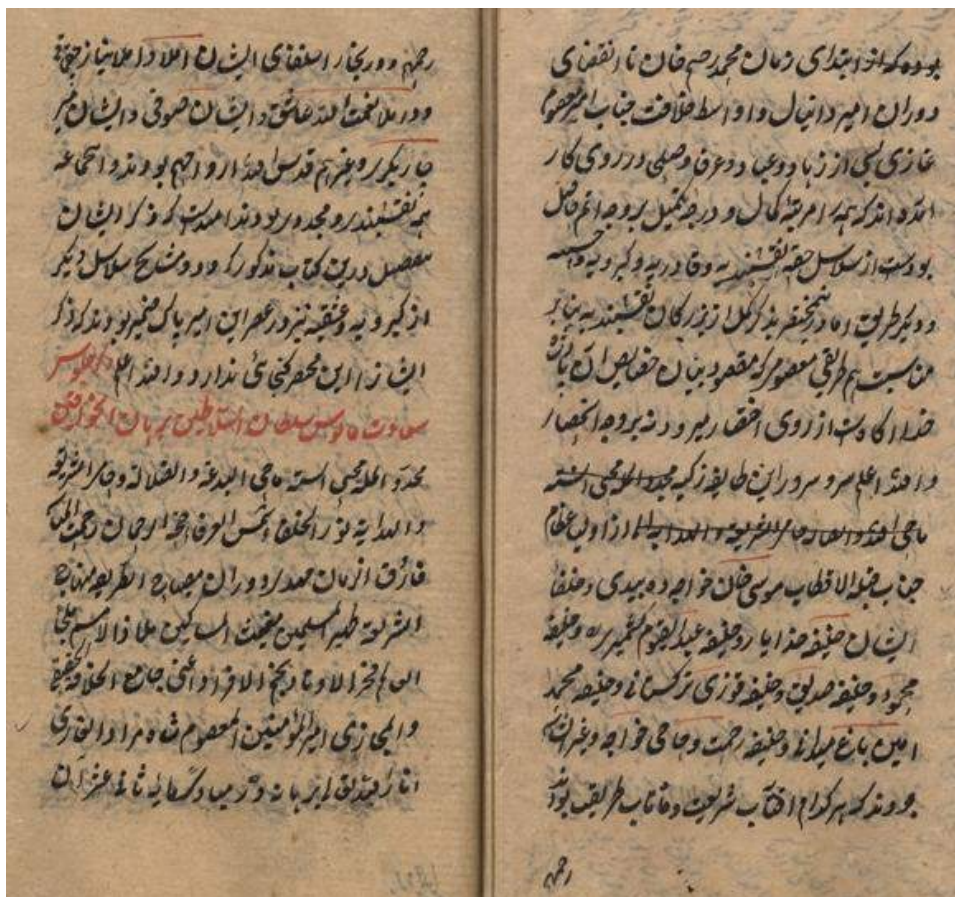 بوده که از ابتدای زمان محمد رحیم خان تا انقضای
دوران امیر دانیال و اواسط خلافت جناب امیر معصوم
غازی بسی از زهاد و عباد و عرفا و صلحا در روی کار
آمده اند که همه را مرتبهٔ کمال و درجهٔ تکمیل بروجه اتم حاصل
بودست از سلاسل حقه نقشبندیه و قادریه و کبرویه و چشتیه
و دیگر طریق اما درین مختصر بذکر کمل از بزرگان نقشبندیه بنابر
مناسبت هم طریقی معصوم که مقصود بیان خصایص آن یگانهٔ
خدا آگاهست از روی اختصار میرود نه بروجه انحصار
والله اعلم سر و سرور این طایفه زکیه مجدد المله محیی السنه
ماحی البدعه والضلاله حامی الشریعه والهدایه از اولیای عظام
جناب قبلة الاقطاب موسی خان خواجه ده بیدی و خلفا
ایشان خلیفه خدایار و خلیفه عبدالقیوم کشمیری و خلیفه
محمود و خلیفه صدیق و خلیفه قوزی ترکستانی و خلیفه محمد
امین باغ میدانی و خلیفه رحمت و حاجی خواجه و غیر ایشان
بودند که هر کدام افتاب شریعت و ماهتاب طریقت بودند
رحمهم
رحمهم و در بخارا ایشان املا و املا نیاز
و در ملا نعمت الله عاشق و ایشان صوفی و ایشان
چاریکر و غیرهم قدس الله ارواحهم بودند و آنجماعه
همه نقشبندیه و مجددیه بودند امدست که ذکر ایشان
مفصل درین کتاب مذکور گردد و مشایخ سلاسل دیگر
از کبرویه و عشقیه نیز در عصر این امیر پاک ضمیر بودند که ذکر
ایشانرا این مختصر گنجائی ندارد والله اعلم ذکر جلوس
سعادت مانوس سلطان السلاطین برهان الخواقین
مجدد المله محیی السنه ماحی البدعه والضلاله و حامی الشریعه
والهدایه نور الخلفا شمس العرفا حجة الرحمان رحمت
فاروق از زمان صفدر دوران مصباح الطریقه منهاج
الشریعه ظهیر المسلمین مغیث المساکین ملاذ الاسم ملجأ
فخر الاوتاد نجم الافراد اعنی جامع الخلافه الحقیقی
والمجازی امیر المؤمنین المعصوم شاه مراد الغازی
انار الله تعالی برهانه و در سال ثانی عشر